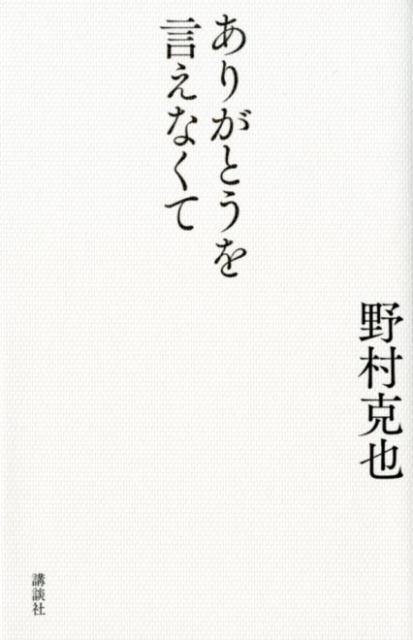 ありがとうを
言えなくて
野村克也
講談社